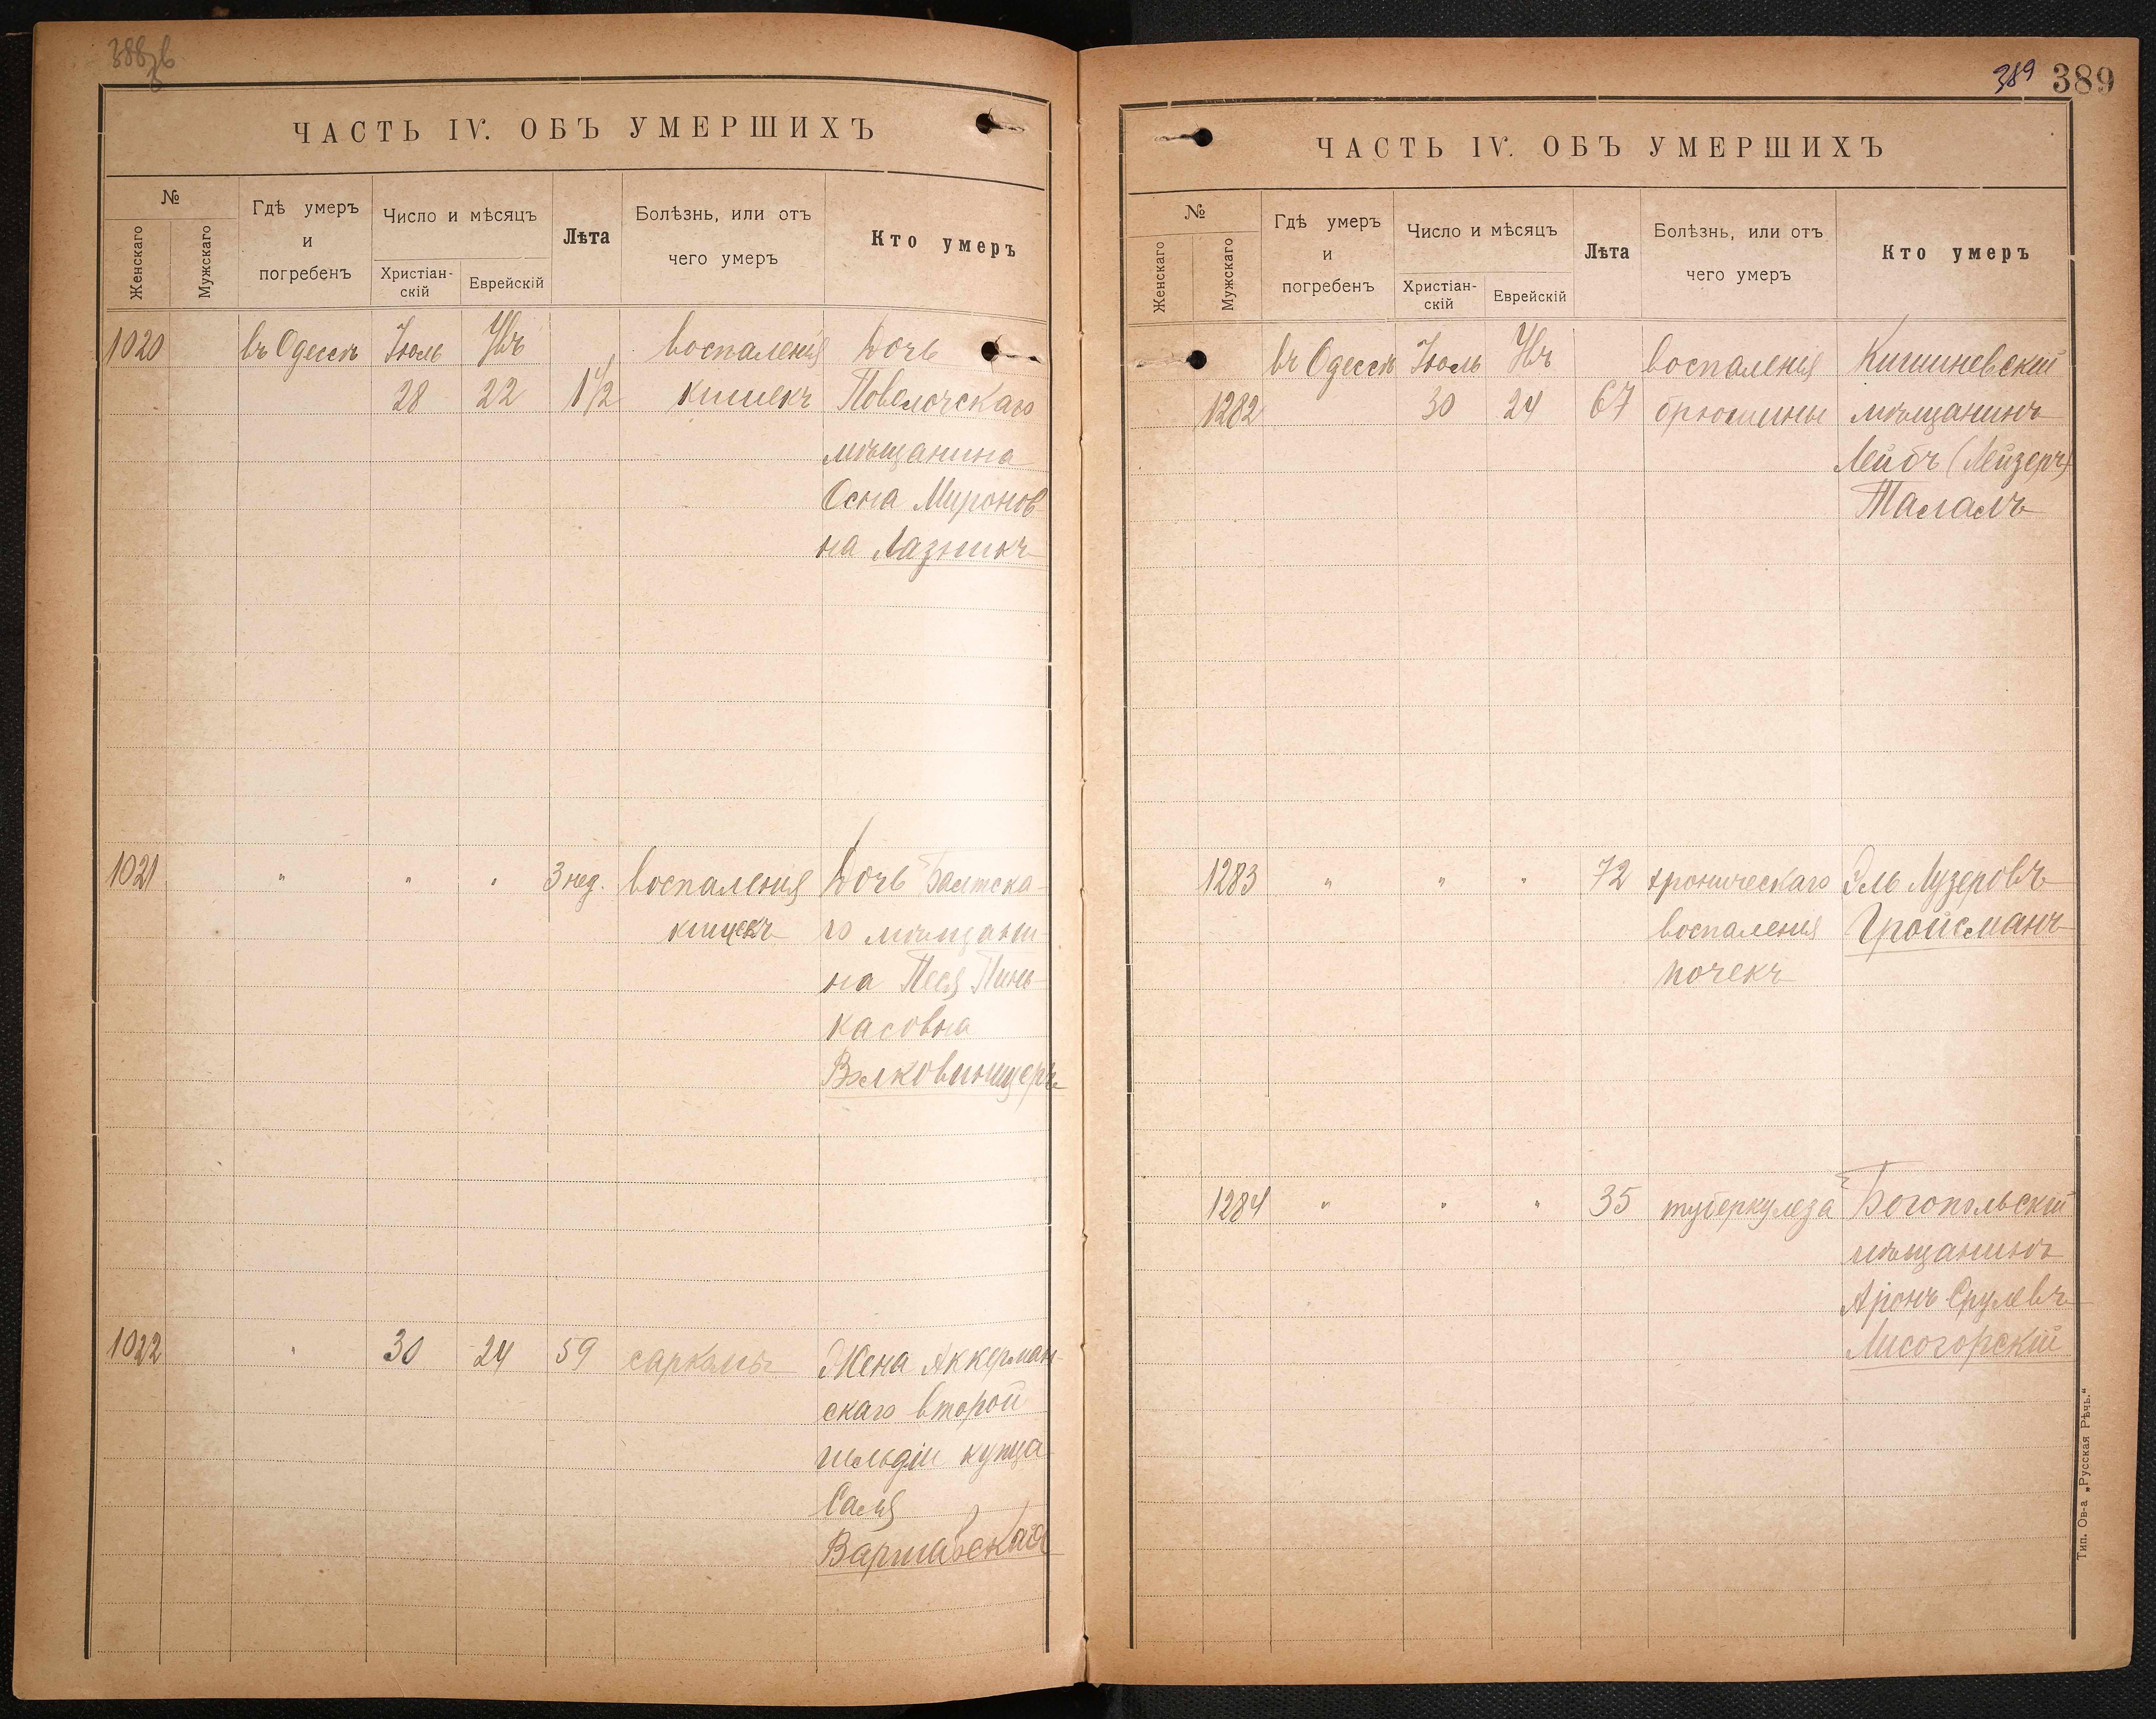 388 об
ЧАСТЬ IV. ОБЪ УМЕРШИХЪ
№
Женскаго
Мужскаго
Гдѣ умеръ
и
погребенъ
Число и мѣсяцъ
Христіан-
скій
Еврейскій
Лѣта
Болѣзнь, или отъ
чего умеръ
Кто умеръ
1020 въ Одессѣ Іюль Увъ воспаленія Дочь
28 22 1 1/2 кишекъ Поволочскаго
мѣщанина
Осна Миронов-
на Лазникъ
1021 " " " 3 нед. воспаленія Дочь Балтска-
кишекъ го мѣщани-
на Песя Пинь-
касовна
Волковинцеръ
1022 " 30 24 59 саркомы Жена Аккерман-
скаго второй
гильдіи купца
Саля
Варшавская
389 389
ЧАСТЬ IV. ОБЪ УМЕРШИХЪ
№
Женскаго
Мужскаго
Гдѣ умеръ
и
погребенъ
Число и мѣсяцъ
Христіан-
скій
Еврейскій
Лѣта
Болѣзнь, или отъ
чего умеръ
Кто умеръ
въ Одессѣ Іюль Увъ воспаленія Кишиневскій
1282 30 24 67 брюшины мѣщанинъ
Лейбъ (Лейзеръ)
Талалъ
1283 " " " 72 хроническаго Эль Лузеровъ
воспаленія Гройсманъ
почекъ
1284 " " " 35 туберкулеза Богопольскій
мѣщанинъ
Аронъ Срулевъ
Лисогорскій
Тип. Ов-а „Русская Рѣчь."